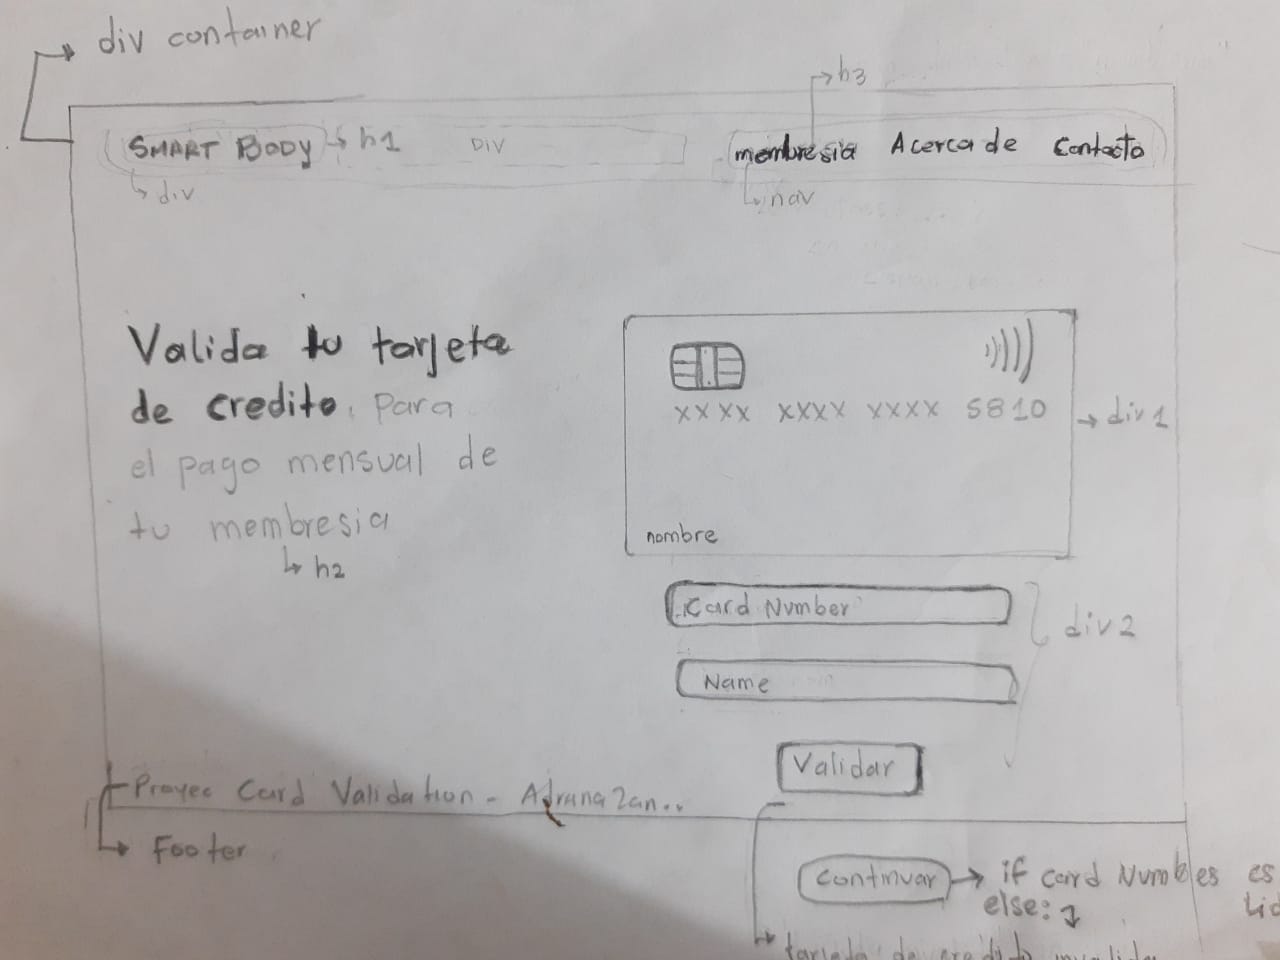 div container
h3
SMART BODY h1 DIV membresia Acerca de Contacto
div nav
Valida tu tarjeta
de credito. para
el pago mensual de
tu membresia
h2
XXXX XXXX XXXX 5810
div 1
nombre
Card Number
div 2
Name
Validar
Proyec Card Validation -
Footer
Continuar if card Numbles es
else:
tarjeta de credito invalida